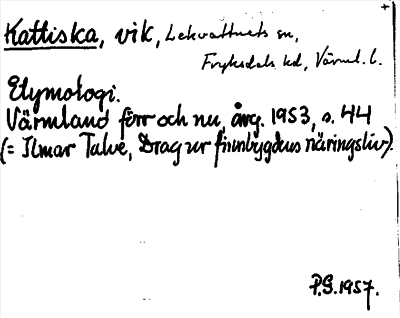 Kattiska, vik, Lekvattnets sn,
Fryksdals hd, Värml. l.
Etymologi.
Värmland förr och nu, årg. 1953, s. 44
(= Ilmar Talve, Drag ur finnbygdens näringsliv).
P.G. 1957.